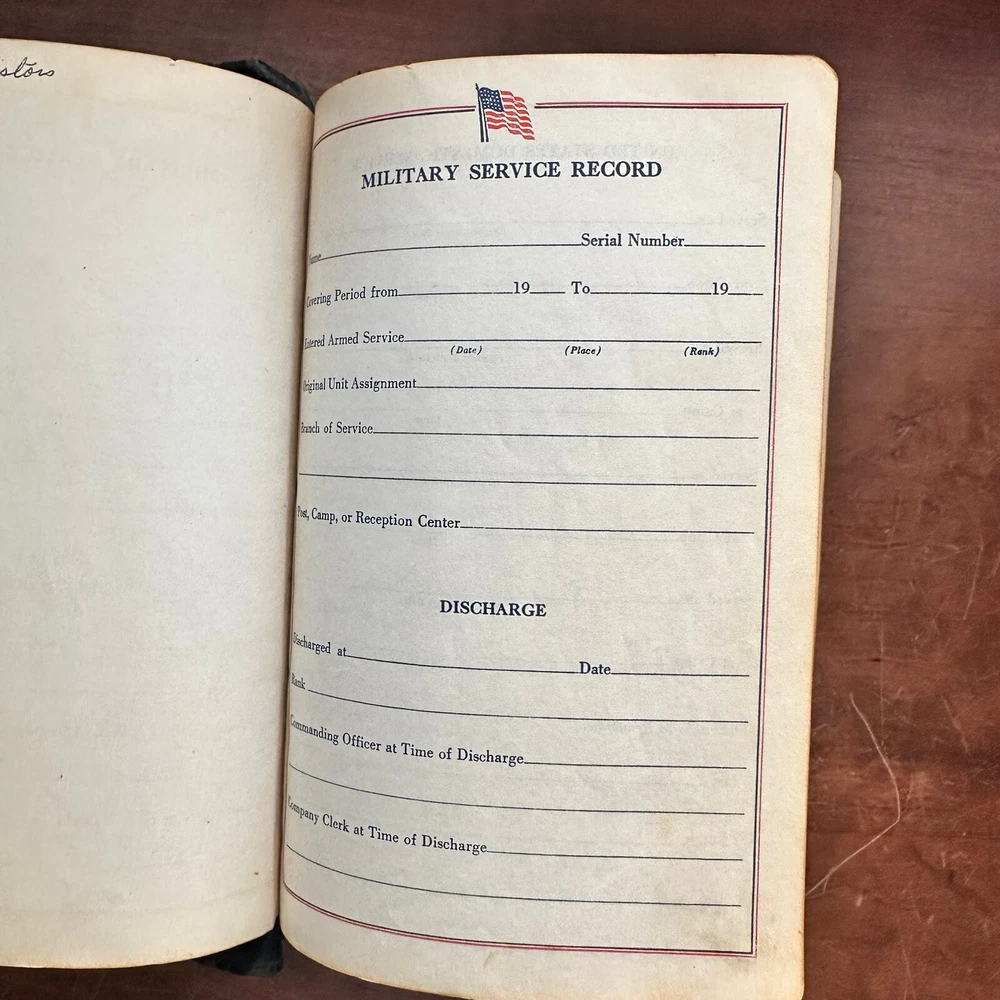 MILITARY SERVICE RECORD
Name Serial Number
Covering Period from 19 To 19
Entered Armed Service
(Date) (Place) (Rank)
Original Unit Assignment
Branch of Service
Post, Camp, or Reception Center
DISCHARGE
Discharged at Date
Rank
Commanding Officer at Time of Discharge
Company Clerk at Time of Discharge